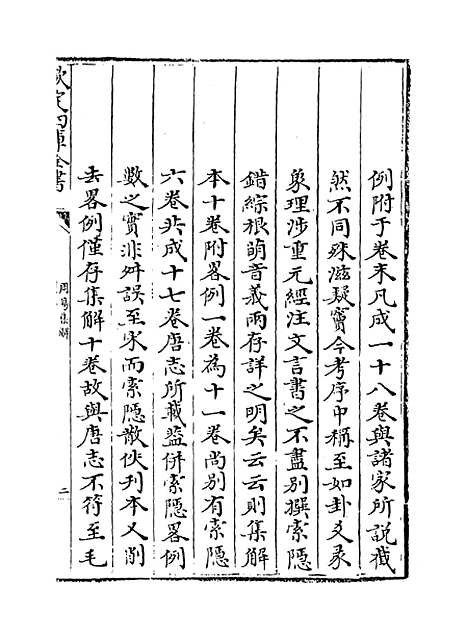 例附于卷末凡成一十八卷與諸家所說截
然不同殊滋疑竇今考序中稱至如卦爻彖
象理涉重元經注文言書之不盡別撰索隱
錯綜根萌音義兩存詳之明矣云云則集解
本十卷附畧例一卷為十一卷尚別有索隱
六卷共成十七卷唐志所載蓋併索隱畧例
數之實非舛誤至宋而索隱散佚刊本又削
去畧例僅存集解十卷故與唐志不符至毛
欽定四庫全書
周易集解
二